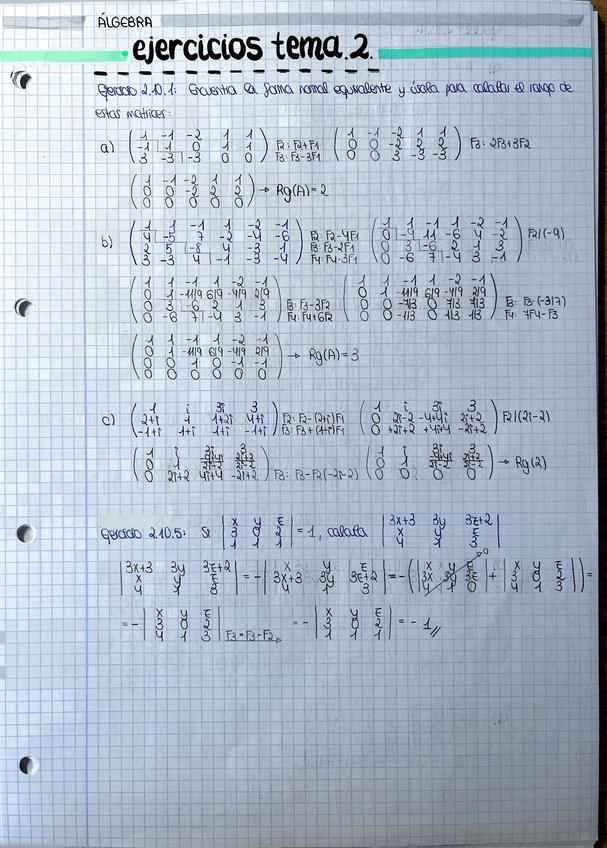 ÁLGEBRA
ejercicios tema.2.
Ejercicio 2.10.1: Encuentra la forma normal equivalente y úsala para calcular el rango de
estas matrices:
a) ( 1 -1 -2 1 1 ) ( 1 -1 -2 1 1 )
( -1 1 0 1 1 ) F2: F2+F1 ( 0 0 -2 2 2 ) F3: 2F3+3F2
( 3 -3 -3 0 0 ) F3: F3-3F1 ( 0 0 3 -3 -3 )
( 1 -1 -2 1 1 )
( 0 0 -2 2 2 ) → Rg(A)=2
( 0 0 0 0 0 )
b) ( 1 1 -1 1 -2 -1 ) ( 1 1 -1 1 -2 -1 )
( 4 -5 7 -2 -4 -6 ) F2: F2-4F1 ( 0 -9 11 -6 4 -2 ) F2/(-9)
( 2 5 -8 4 -3 1 ) F3: F3-2F1 ( 0 3 -6 2 1 3 )
( 3 -3 4 -1 -3 -4 ) F4: F4-3F1 ( 0 -6 7 -4 3 -1 )
( 1 1 -1 1 -2 -1 ) ( 1 1 -1 1 -2 -1 )
( 0 1 -11/9 6/9 -4/9 2/9 ) ( 0 1 -11/9 6/9 -4/9 2/9 )
( 0 3 -6 2 1 3 ) F3: F3-3F2 ( 0 0 -7/3 0 7/3 7/3 ) F3: F3·(-3/7)
( 0 -6 7 -4 3 -1 ) F4: F4+6F2 ( 0 0 -1/3 0 1/3 1/3 ) F4: 7F4-F3
( 1 1 -1 1 -2 -1 )
( 0 1 -11/9 6/9 -4/9 2/9 ) → Rg(A)=3
( 0 0 1 0 -1 -1 )
( 0 0 0 0 0 0 )
c) ( 1 i 3i 3 ) ( 1 i 3i 3 )
( 2+i 1 1+2i 4+i ) F2: F2-(2+i)F1 ( 0 2i-2 -4+4i 2i+2 ) F2/(2i-2)
( -1+i 1+i 1+i -1+i ) F3: F3+(1+i)F1 ( 0 +2i+2 +4i+4 -2i+2 )
( 1 i 3i 3 ) ( 1 i 3i 3 )
( 0 1 2i+2/2i-2 ) ( 0 1 2i+2/2i-2 )
( 0 2i+2 4i+4 -2i+2 ) F3: F3-F2(-2i-2) ( 0 0 0 0 ) → Rg(2)
Ejercicio 2.10.5: Si | x y z | = 1, calcula | 3x+3 3y 3z+2 |
| 3 0 2 | | x y z |
| 1 1 1 | | 4 1 3 |
| 3x+3 3y 3z+2 | = - | x y z | = -( | x y z | + | x y z | ) =
| x y z | | 3x+3 3y 3z+2 | | 3x 3y 3z | | 3 0 2 |
| 4 1 3 | | 4 1 3 | | 4 1 0 | | 4 1 3 |
= - | x y z | = - | x y z | = - 1 //
| 3 0 2 | | 3 0 2 |
| 4 1 3 | F3=F3-F2 | 1 1 1 |